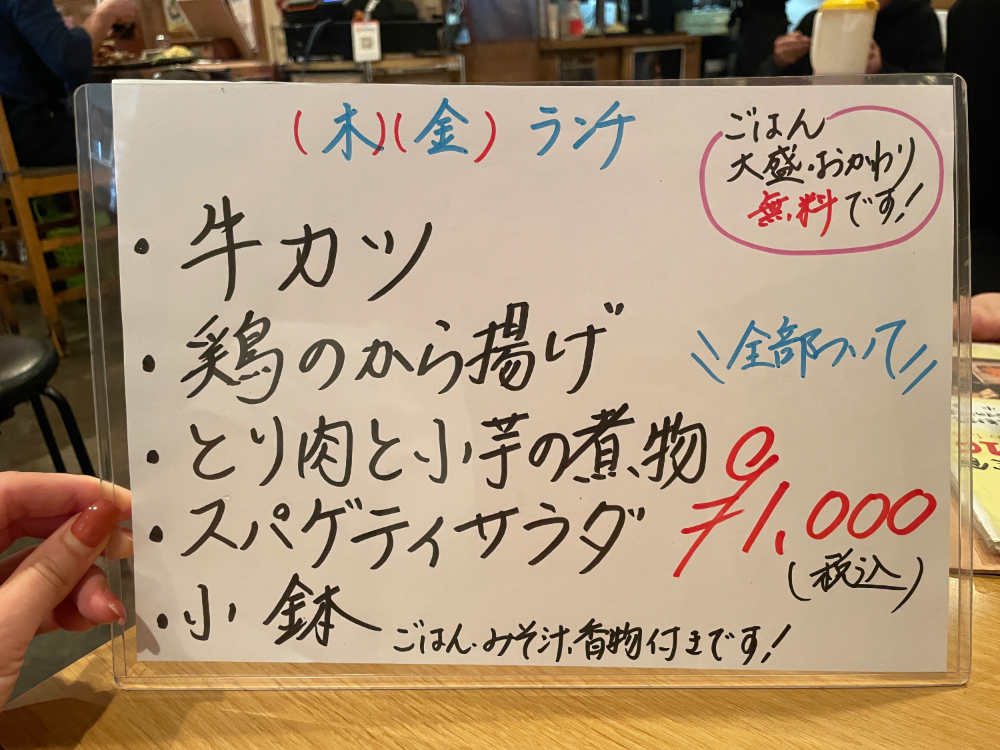 (木)(金) ランチ
ごはん
大盛・おかわり
無料です!
・牛カツ
・鶏のから揚げ
・とり肉と小芋の煮物
・スパゲティサラダ
・小鉢
全部ついて
¥1,000
(税込)
ごはん・みそ汁・香物付きです!